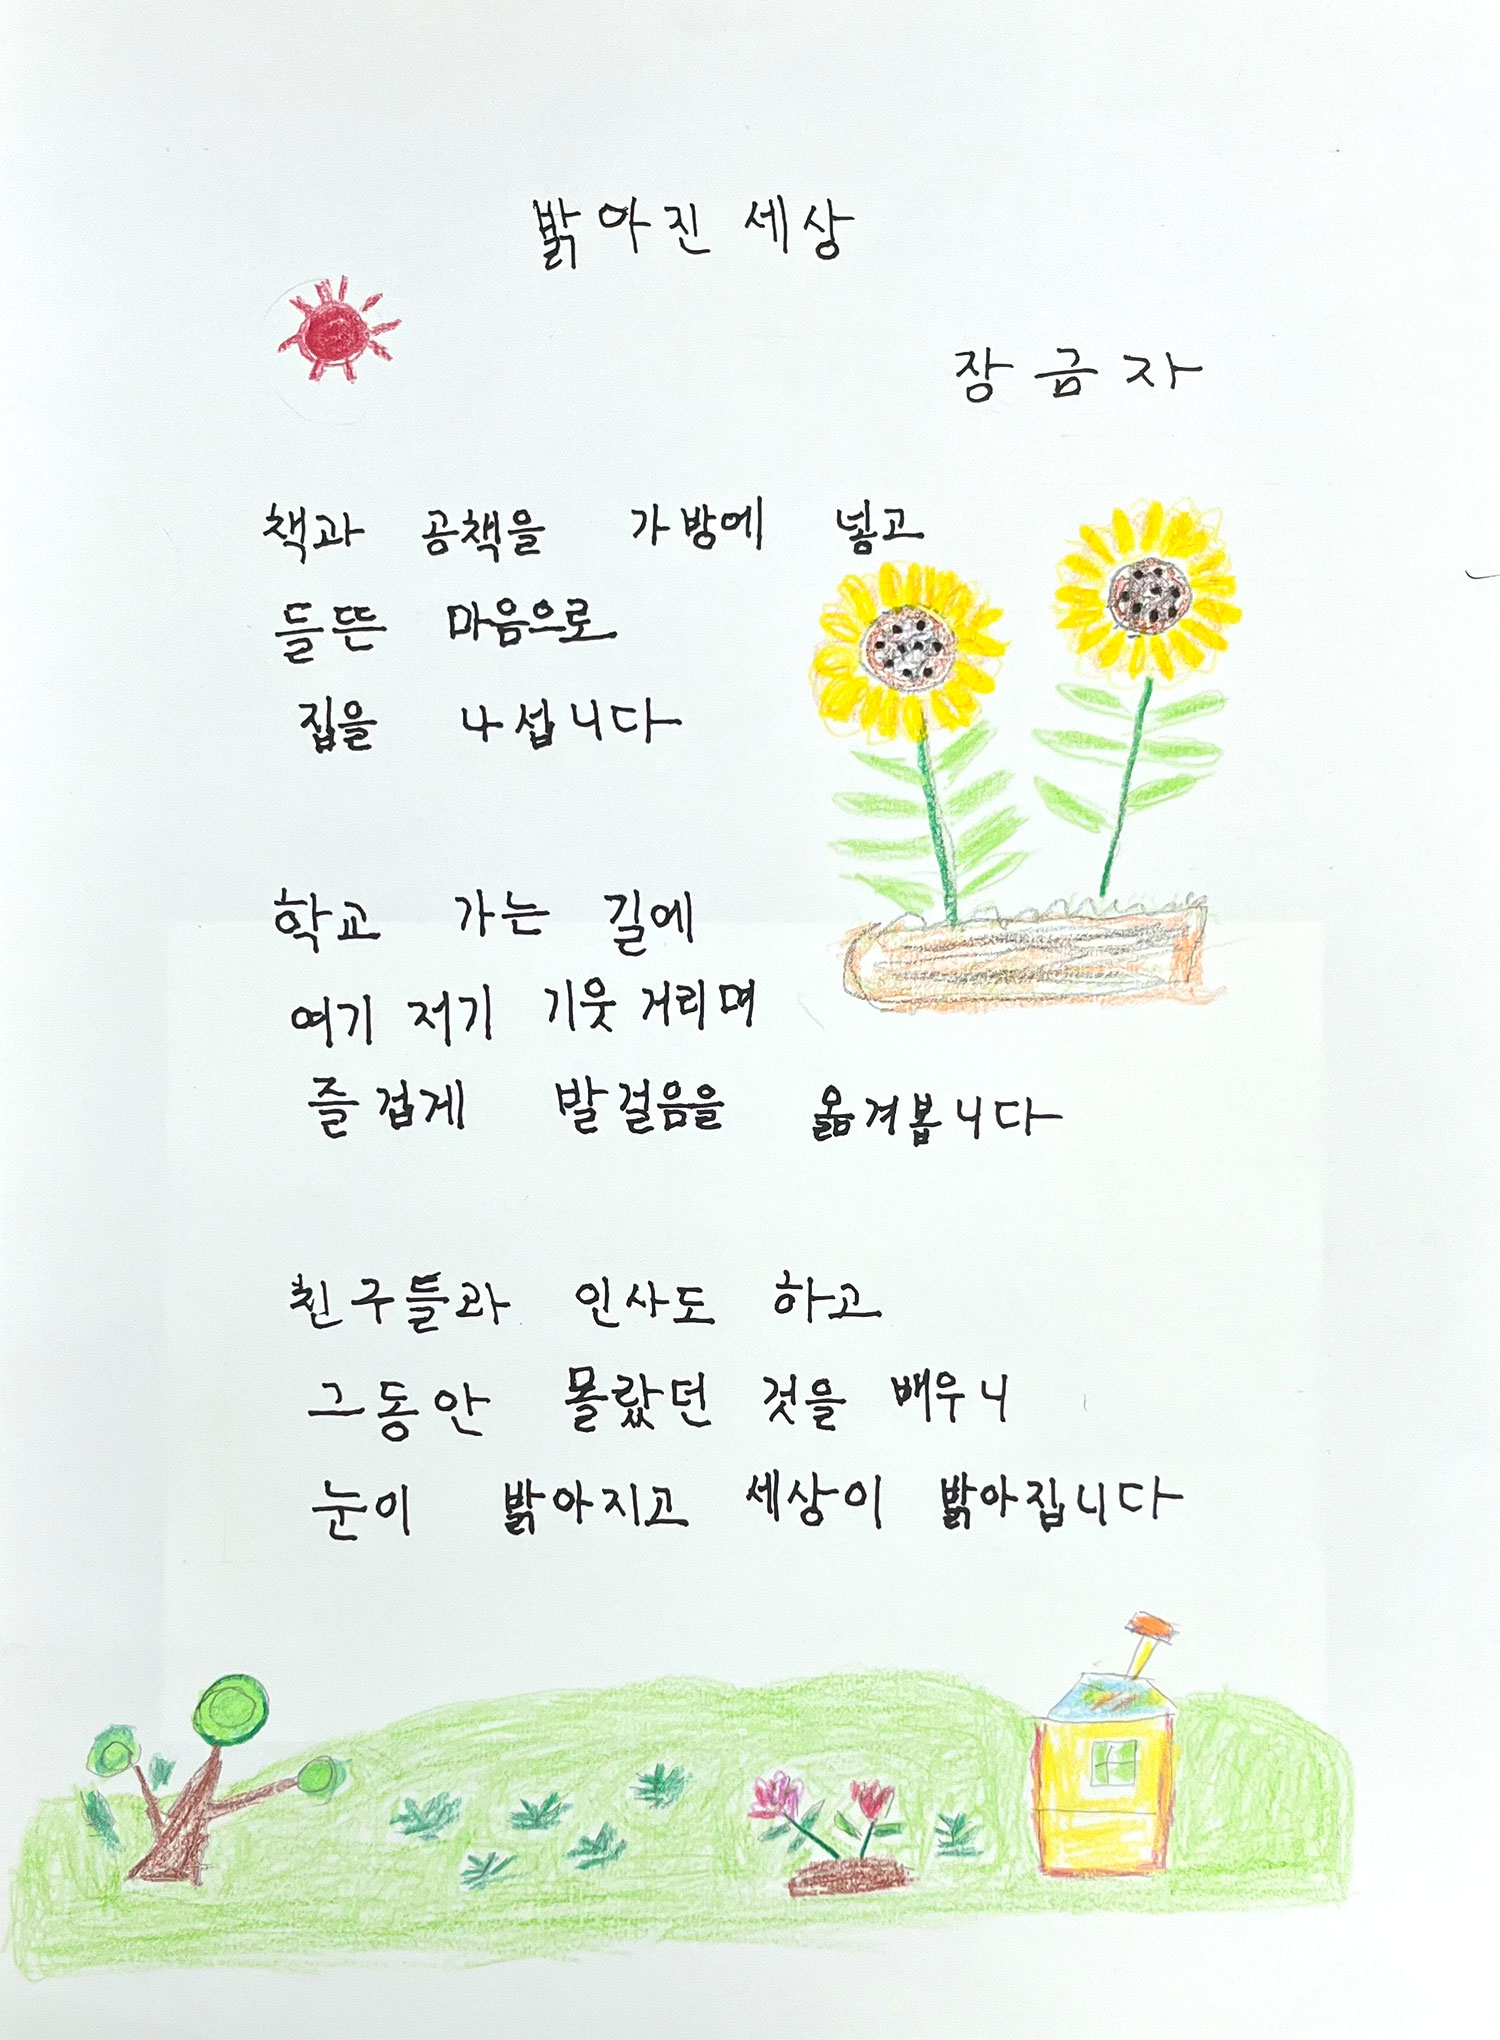 밝아진 세상
장금자
책과 공책을 가방에 넣고
들뜬 마음으로
집을 나섭니다
학교 가는 길에
여기 저기 기웃 거리며
즐겁게 발걸음을 옮겨봅니다
친구들과 인사도 하고
그동안 몰랐던 것을 배우니
눈이 밝아지고 세상이 밝아집니다